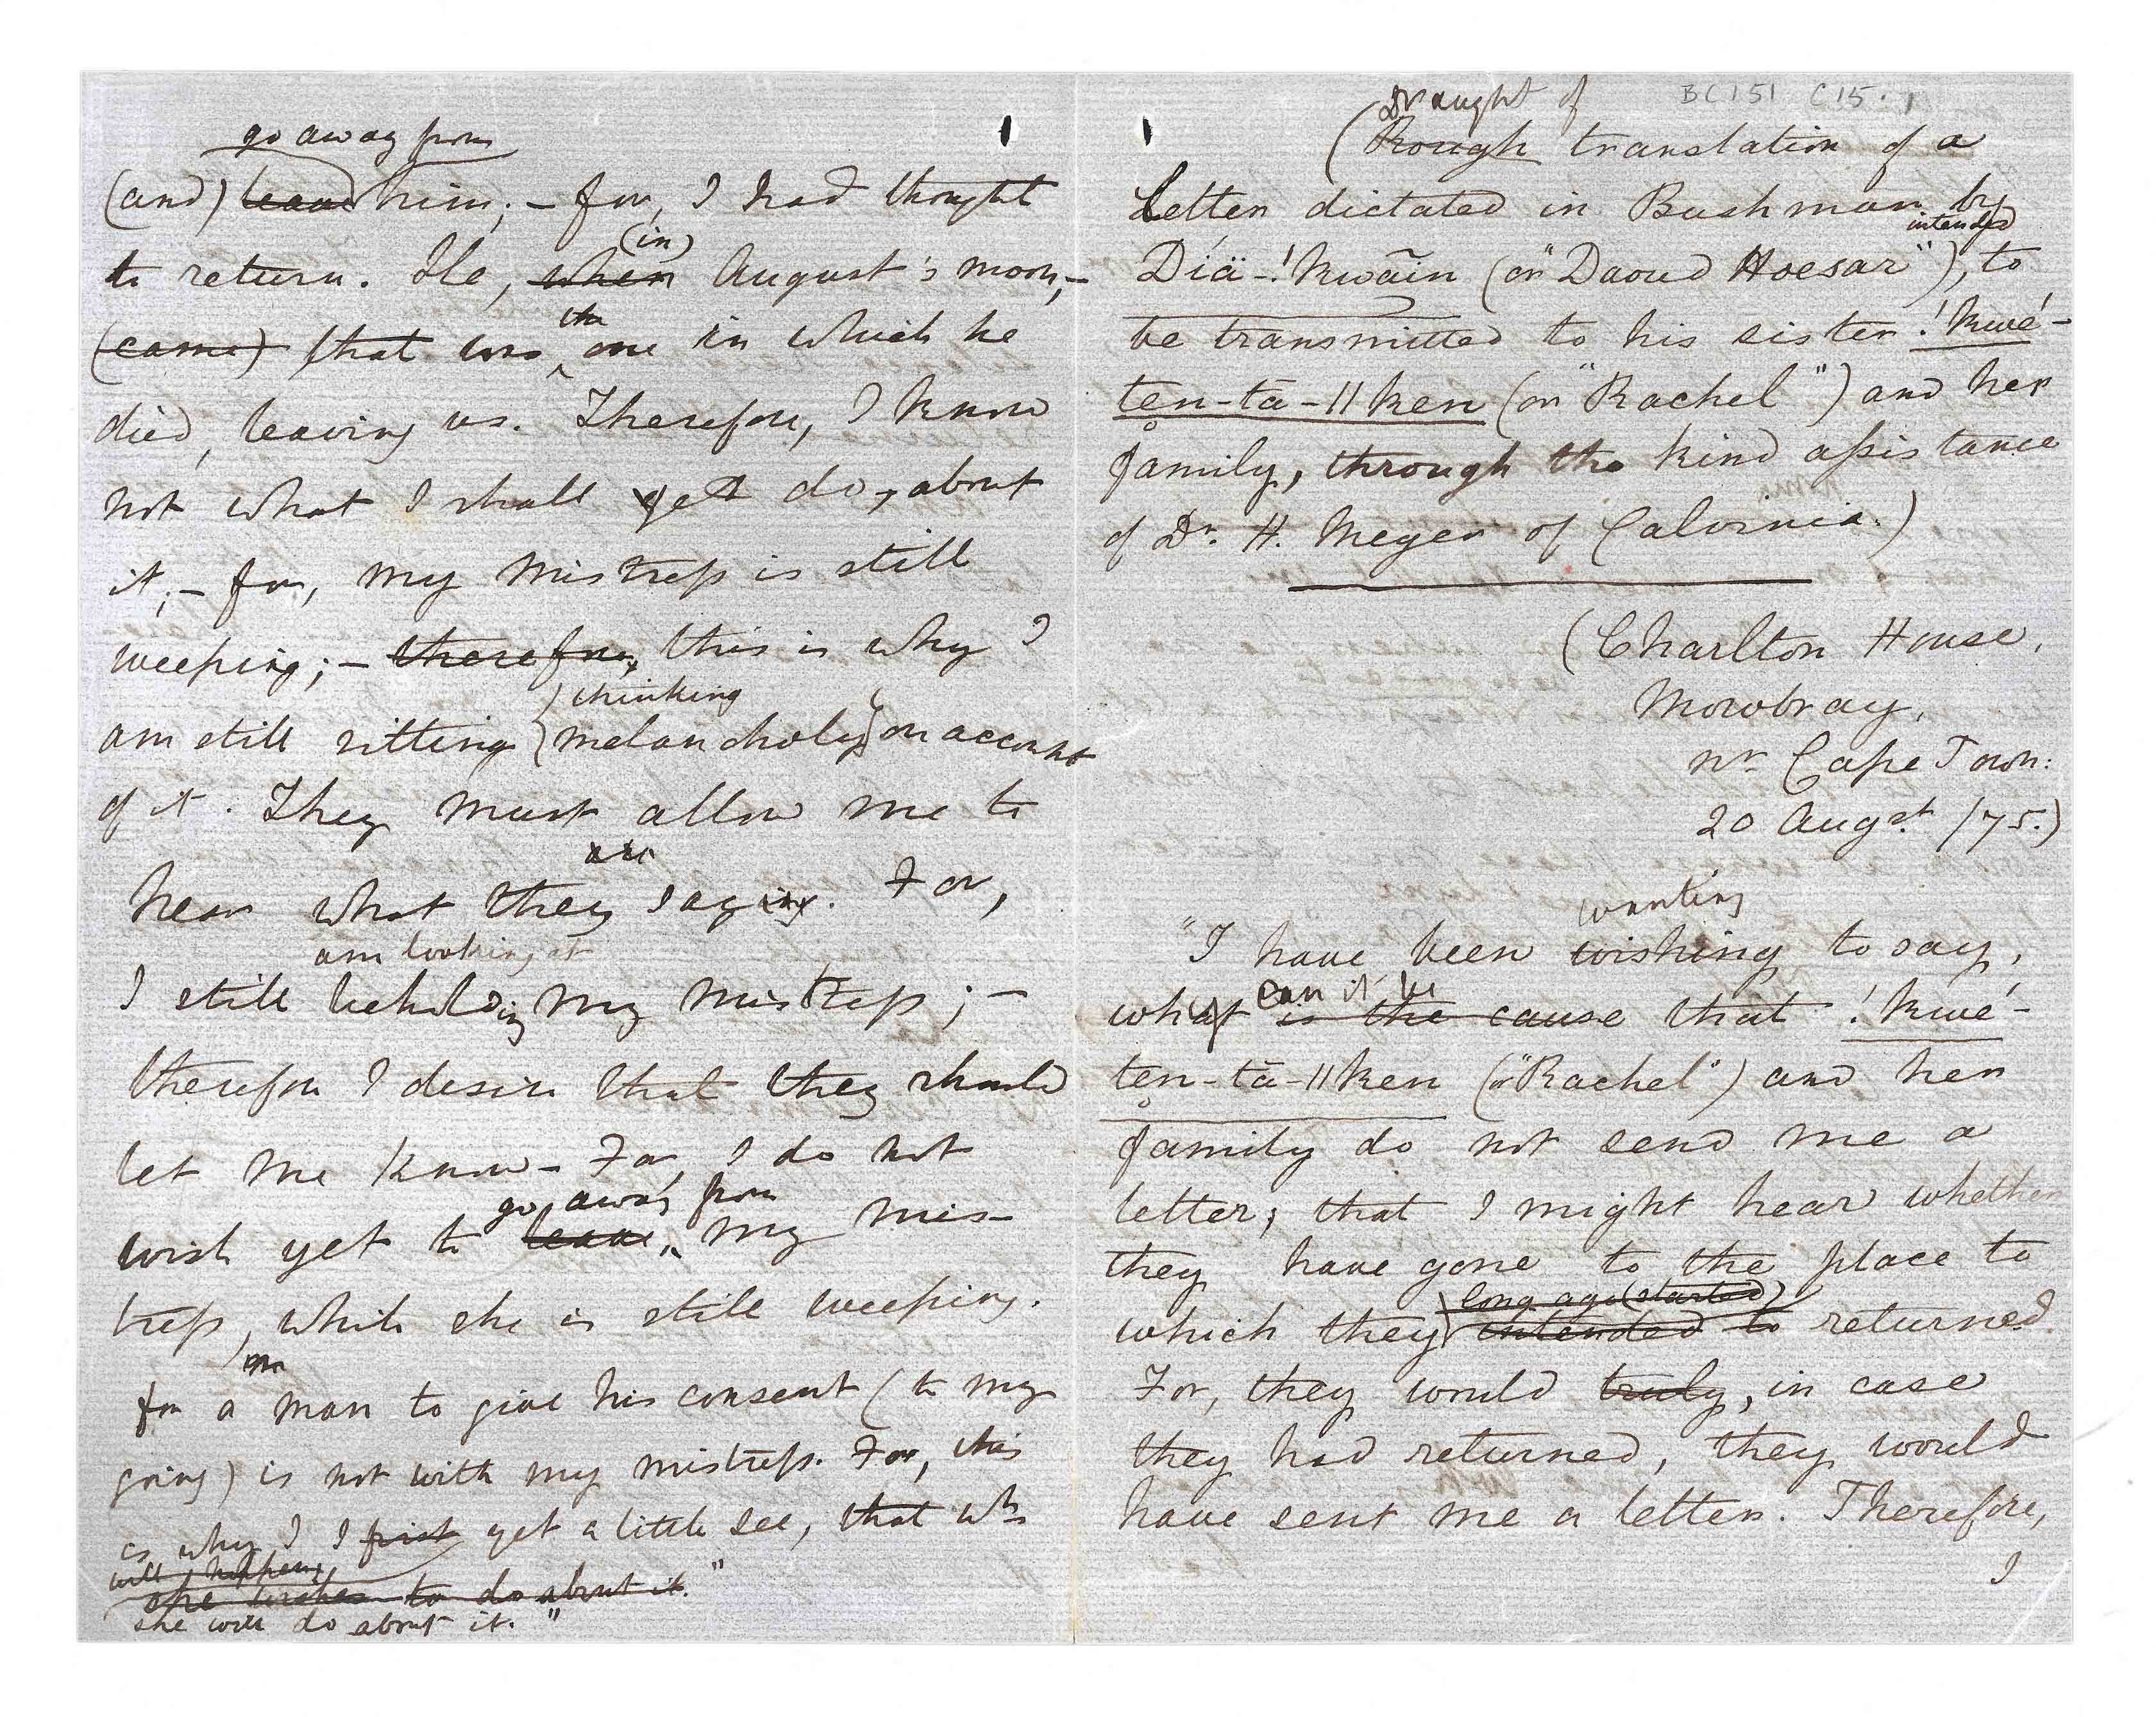 go away from
(and) leave him; – for, I had thought
(in)
to return. He, when August's moon, –
the
(came) that was one in which he
died, leaving us. Therefore, I know
not what I shall yet do, about
it; – for, my mistress is still
weeping; – therefore, this is why I
thinking
am still sitting melancholy on account
of it. They must allow me to
are
hear what they saying. For,
am looking at
I still beholding my mistress; –
therefore I desire that they should
let me know – For, I do not
go away from
wish yet to leave, my mis-
tress, while she is still weeping.
for a man to give his consent (to my
going) is not with my mistress. For, this
is why I I first yet a little see, that wh
will happen,
she wishes to do about it."
she will do about it."
BC151 C15.1
Draught of
(Rough translation of a
Letter dictated in Bushman by
intended
Díä-!kwãin (or "Daoud Hoesar"), to
be transmitted to his sister !kwé-
ten-tā-||ken (or "Rachel") and her
family, through the kind assistance
of Dr. H. Meyer of Calvinia.)
(Charlton House,
Mowbray,
nr. Cape Town:
20 Augst. /75.)
wanting
"I have been wishing to say,
can it be
what is the cause that !kwé-
ten-tā-||ken (or "Rachel") and her
family do not send me a
letter; that I might hear whether
they have gone to the place to
long ago (started)
which they intended to returned.
For, they would truly, in case
they had returned, they would
have sent me a letter. Therefore,
I